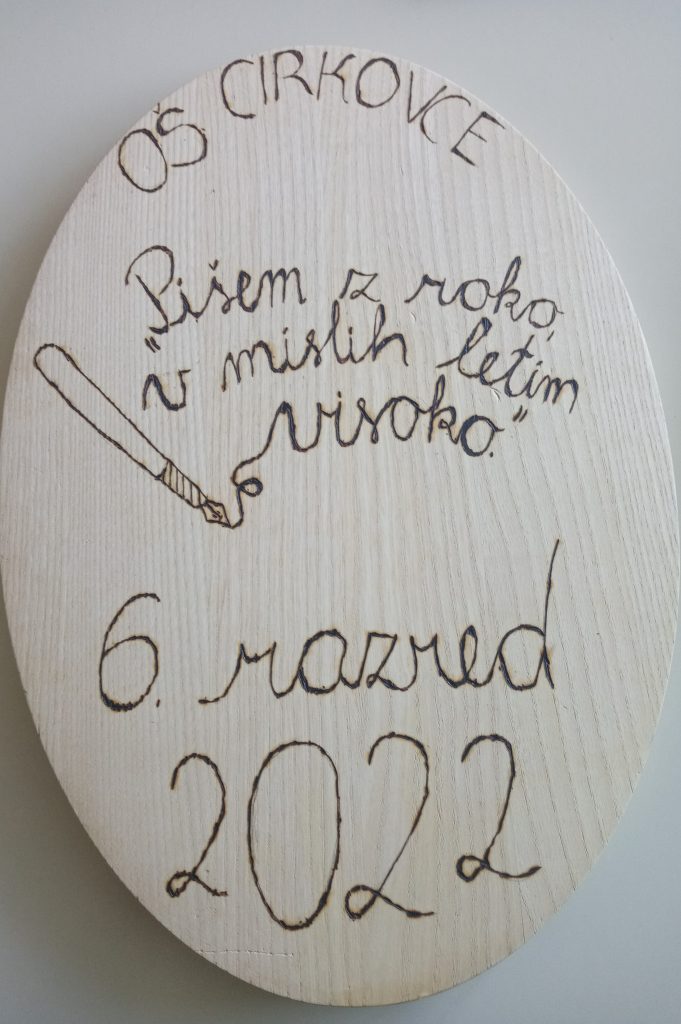 OŠ CIRKOVCE
„Pišem z roko,
v mislih letim
visoko."
6. razred
2022